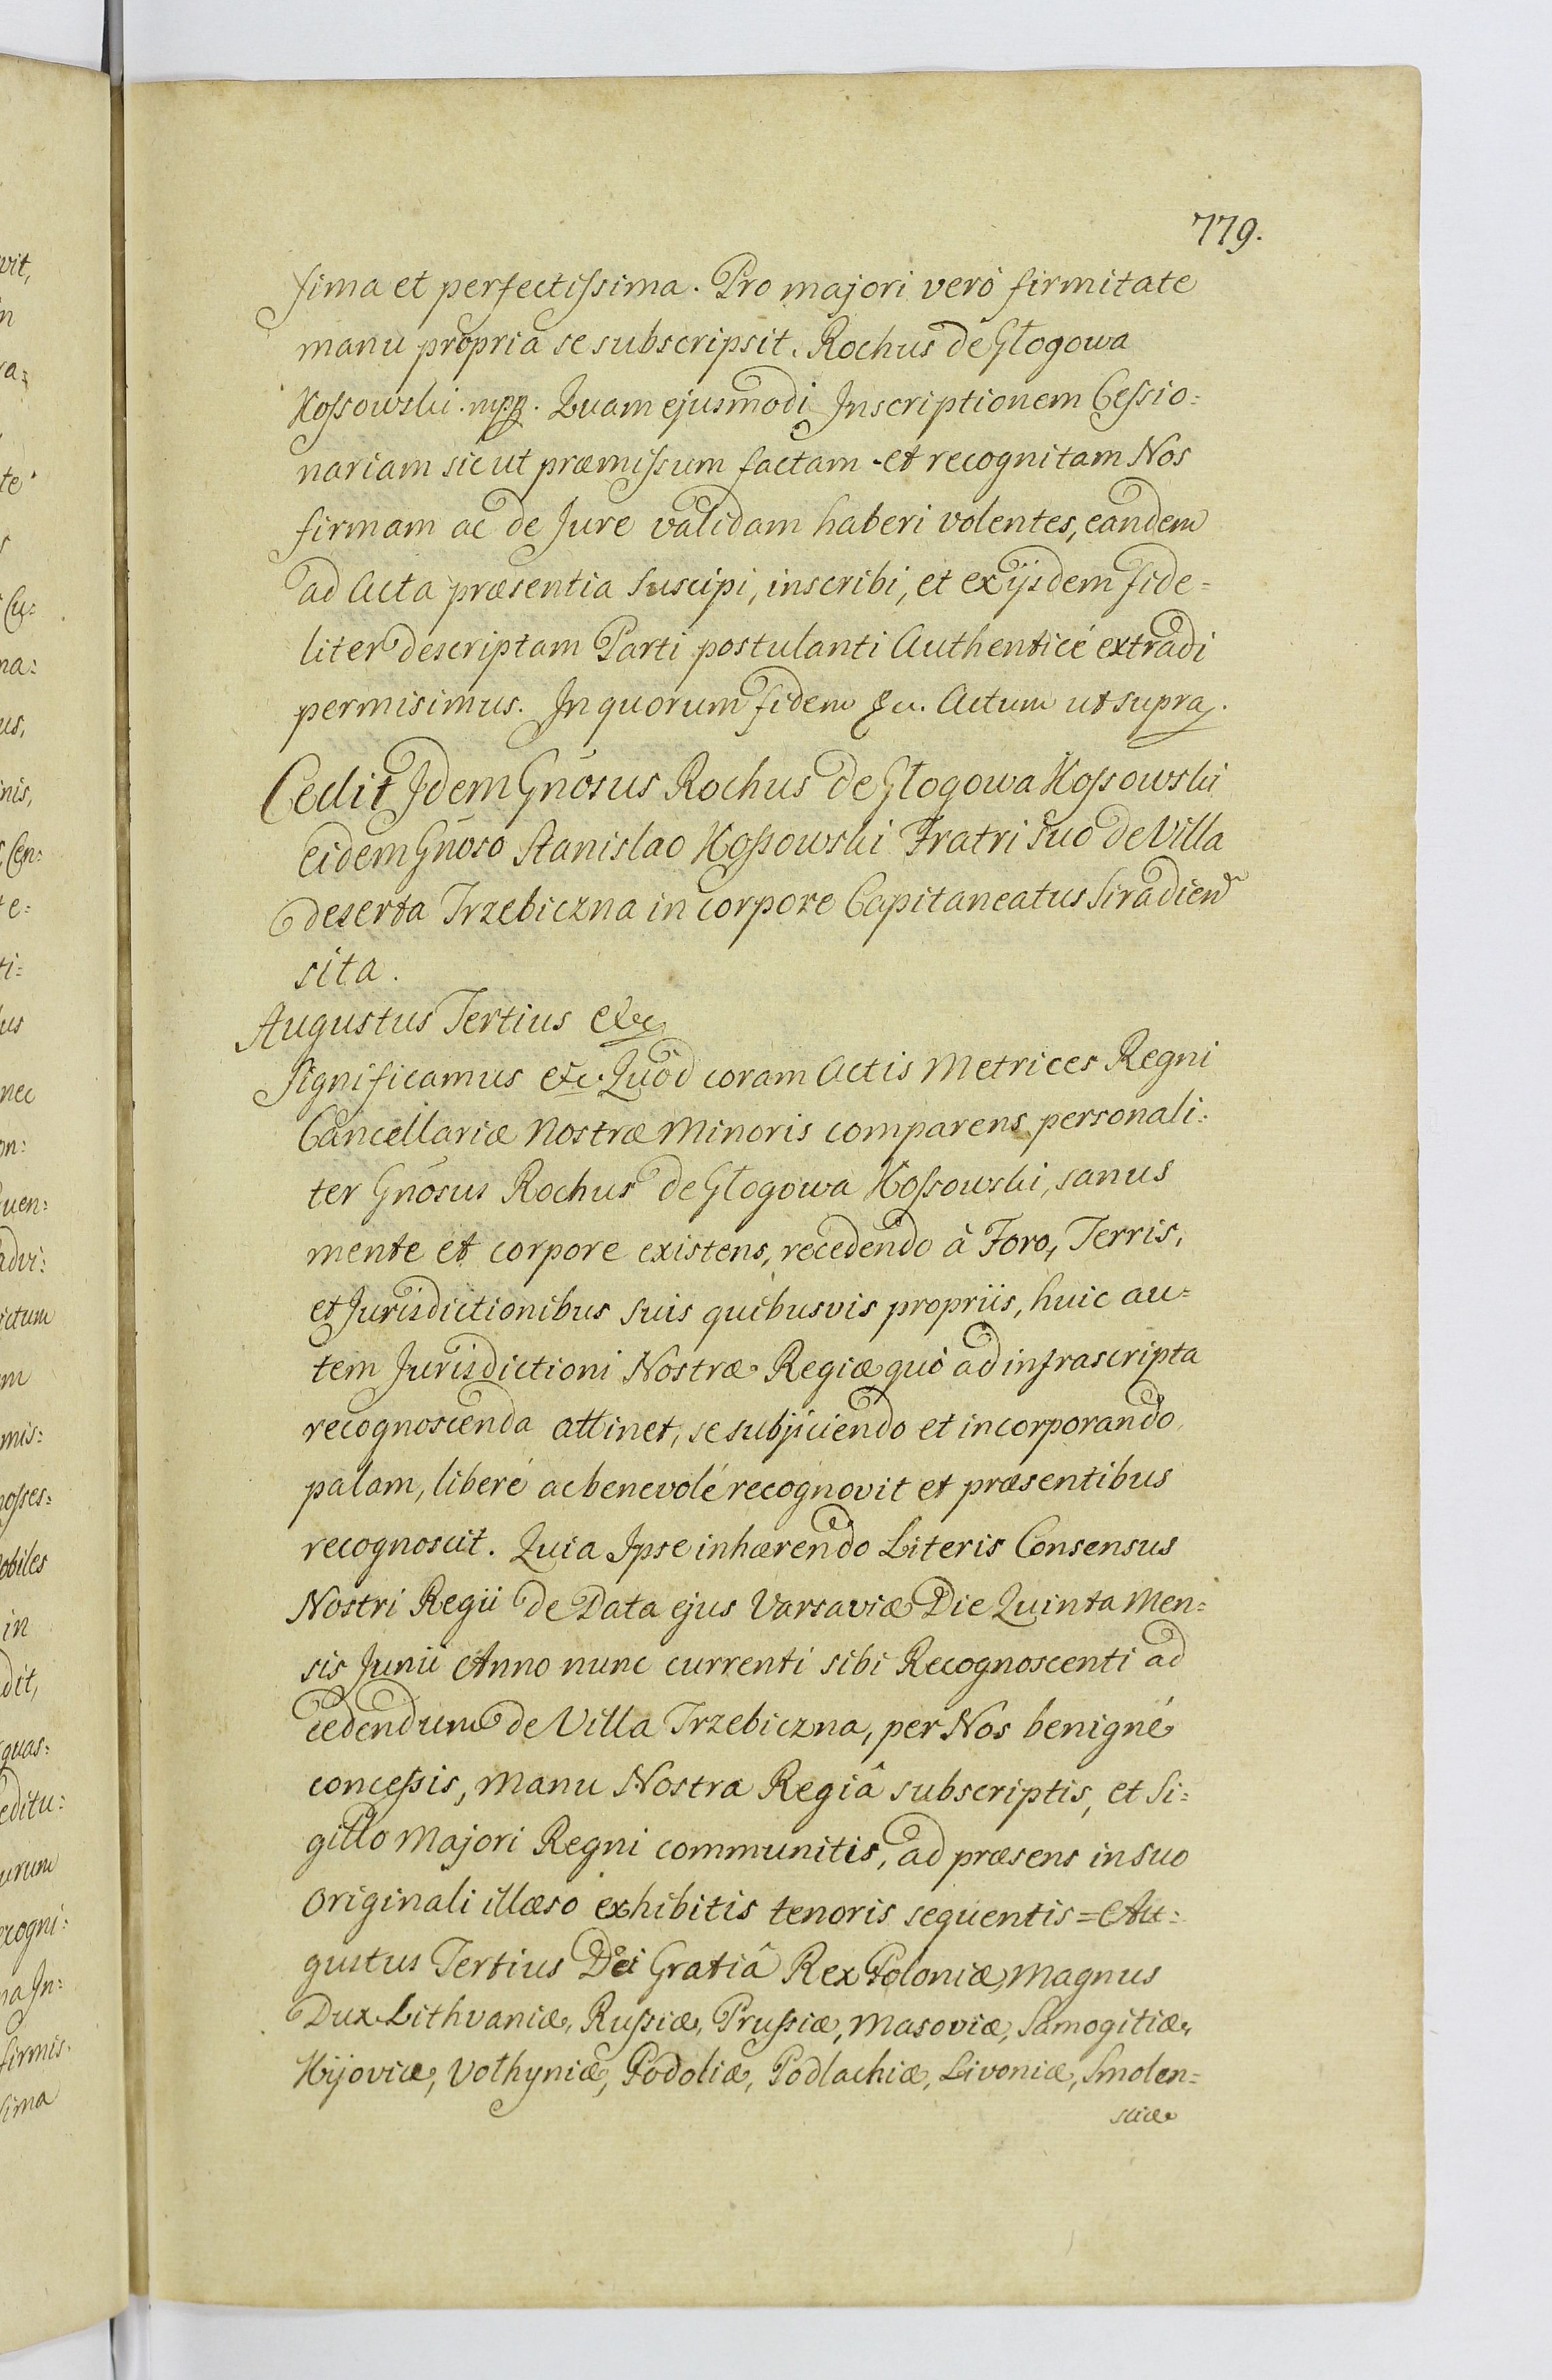 779.
sima et perfectissima. Pro majori verò firmitate
manu propria se subscripsit. Rochus de Głogowa
Kossowski. mpp. Quam ejusmodi Inscriptionem Cessio=
nariam sicut præmissum factam et recognitam Nos
firmam ac de Jure validam haberi volentes, eandem
ad Acta præsentia suscipi, inscribi, et ex ijsdem fide=
liter descriptam Parti postulanti Authenticè extradi
permisimus. In quorum fidem &c. Actum ut supra.
Cedit Idem Gnosus Rochus de Głogowa Kossowski
eidem Gnoso Stanislao Kossowski Fratri suo de Villa
deserta Trzebiczna in corpore Capitaneatus Siradien
sita.
Augustus Tertius &c
Significamus &c. Quòd coram Actis Metrices Regni
Cancellariæ Nostræ Minoris comparens personali=
ter Gnosus Rochus de Głogowa Kossowski, sanus
mente et corpore existens, recedendo à Foro, Terris,
et Jurisdictionibus suis quibusvis propriis, huic au=
tem Jurisdictioni Nostræ Regiæ quò ad infrascripta
recognoscenda attinet, se subjiciendo et incorporando
palam, liberè ac benevolè recognovit et præsentibus
recognoscit. Quia Ipse inhærendo Literis Consensus
Nostri Regii de Data ejus Varsaviæ Die Quinta Men=
sis Junii Anno nunc currenti sibi Recognoscenti ad
cedendum de Villa Trzebiczna, per Nos benignè
concessis, Manu Nostra Regiâ subscriptis, et Si=
gillo Majori Regni communitis, ad præsens in suo
Originali illæso exhibitis tenoris sequentis = Au=
gustus Tertius Dei Gratiâ Rex Poloniæ, Magnus
Dux Lithvaniæ, Russiæ, Prussiæ, Masoviæ, Samogitiæ,
Kijoviæ, Volhyniæ, Podoliæ, Podlachiæ, Livoniæ, Smolen=
sciæ